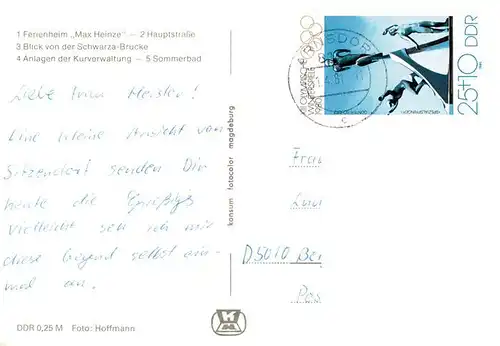 1 Ferienheim „Max Heinze" — 2 Hauptstraße
3 Blick von der Schwarza-Brücke
4 Anlagen der Kurverwaltung — 5 Sommerbad
Liebe Frau Meister!
Eine kleine Ansicht von
Sitzendorf senden Dir
heute die
vielleicht seh ich mir
diese Gegend selbst ein-
mal an.
DDR 0,25 M Foto: Hoffmann
konsum fotocolor magdeburg
OLYMPISCHE
WINTERSPIELE
1980
25+10 DDR
Frau
D 5010 Ber
Pos